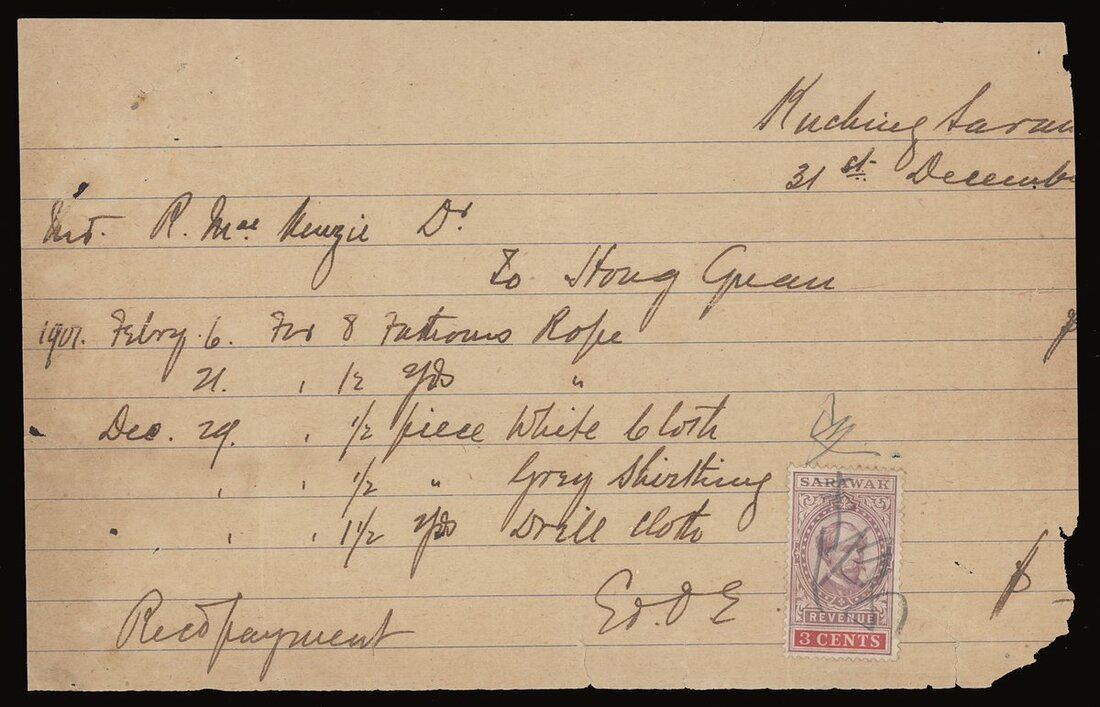 Kuching Saraw
31st Decembe
Mr. R. Mac Kenzie Dr
To Hong Guan
1901. Febry. 6. For 8 Fathoms Rope
21. , 12 yds "
Dec. 29. , 1/2 piece White Cloth
, , 1/2 " Grey Shirthing
, , 1 1/2 yds Drill Cloth
Recd payment
E. & O E
SARAWAK
REVENUE
3 CENTS